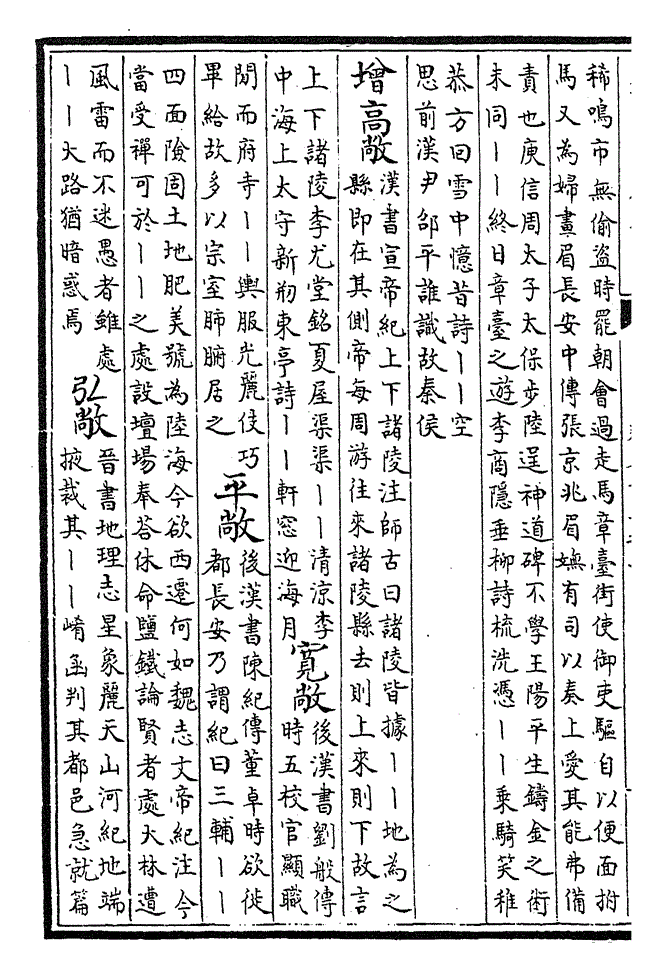 稀鳴市無偷盜時罷朝會過走馬章臺街使御吏驅自以便面拊
馬又為婦畫眉長安中傳張京兆眉嫵有司以奏上愛其能弗備
責也庾信周太子太保步陸逞神道碑不學王陽平生鑄金之術
未同丨丨終日章臺之遊李商隱垂柳詩梳洗憑丨丨乘騎笑稚
恭方回雪中憶昔詩丨丨空
思前漢尹邰平誰識故秦侯
增高敞
漢書宣帝紀上下諸陵注師古曰諸陵皆據丨丨地為之
縣即在其側帝每周游往來諸陵縣去則上來則下故言
上下諸陵李尤堂銘夏屋渠渠丨丨清涼李
中海上太守新刱東亭詩丨丨軒窓迎海月
寬敞
後漢書劉般傳
時五校官顯職
閒而府寺丨丨輿服光麗伎巧
畢給故多以宗室肺腑居之
平敞
後漢書陳紀傳董卓時欲徙
都長安乃謂紀曰三輔丨丨
四面險固土地肥美號為陸海今欲西遷何如魏志文帝紀注今
當受禪可於丨丨之處設壇場奉答休命鹽鐵論賢者處大林遭
風雷而不迷愚者雖處
丨丨大路猶暗惑焉
弘敞
晉書地理志星象麗天山河紀地端
掖裁其丨丨崤函判其都邑急就篇